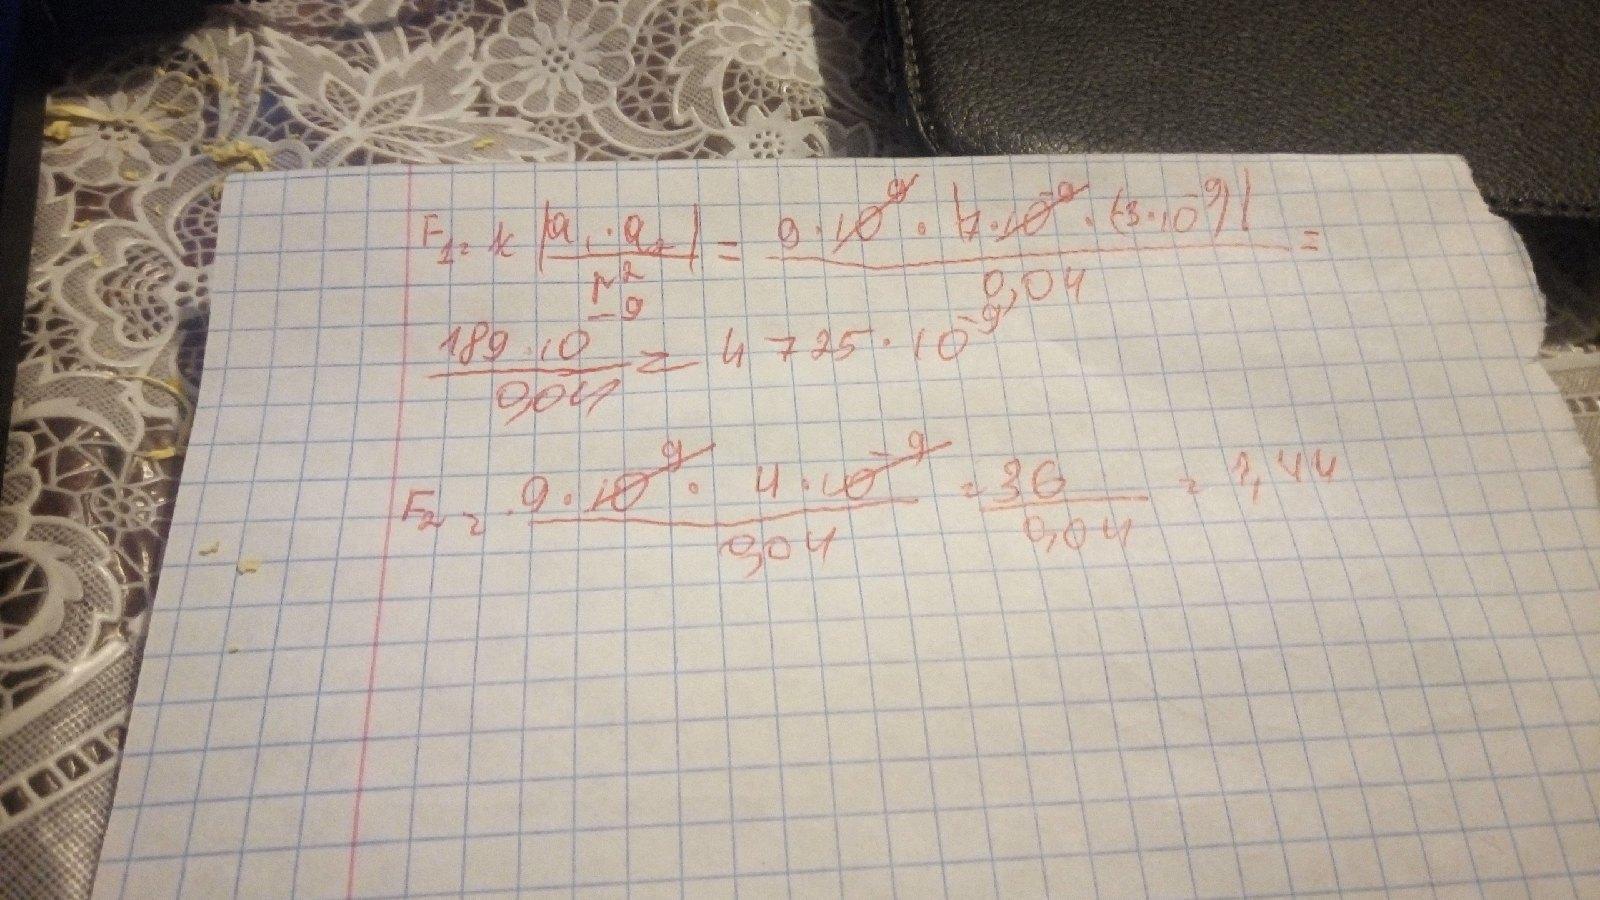 F₁ = k |q₁ · q₂| / r² = 9 · 10⁹ · |7 · 10⁻⁹ · (-3 · 10⁻⁹)| / 0,04 =
189 · 10⁻⁹ / 0,04 = 4725 · 10⁻⁹
F₂ = 9 · 10⁹ · 4 · 10⁻⁹ / 0,04 = 36 / 0,04 = 1,44